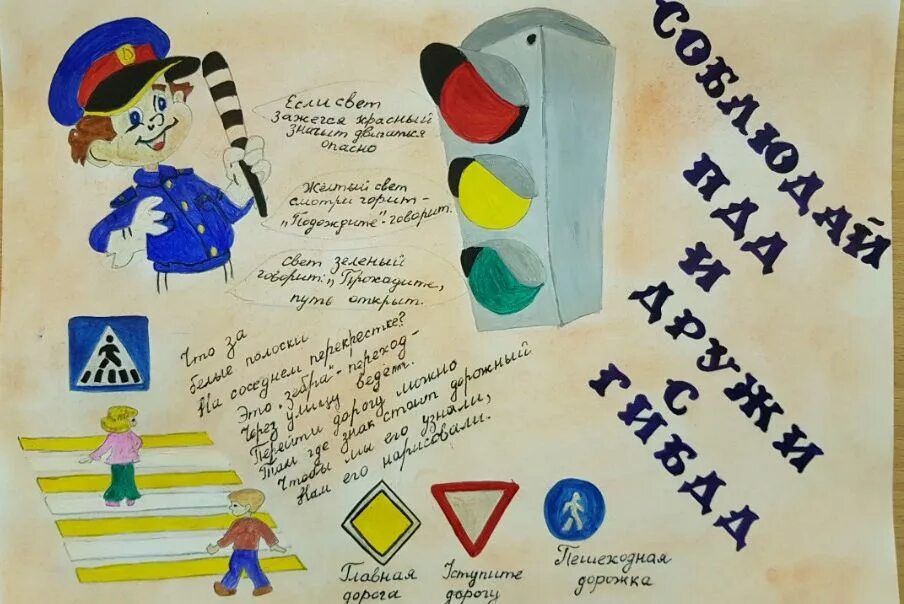 СОБЛЮДАЙ
ПДД
И
ДРУЖИ
С
ГИБДД
Если свет
зажегся красный
значит двигаться
опасно
Жёлтый свет
смотри горит -
"Подождите"-говорит.
Свет зеленый
говорит: "Проходите,
путь открыт.
Что за
белые полоски
На соседнем перекрестке?
Это „зебра"- переход -
Через улицу ведет.
Перейти дорогу можно
Там где знак стоит дорожный
Чтобы мы его узнали,
Нам его нарисовали.
Главная
дорога
Уступите
дорогу
Пешеходная
дорожка